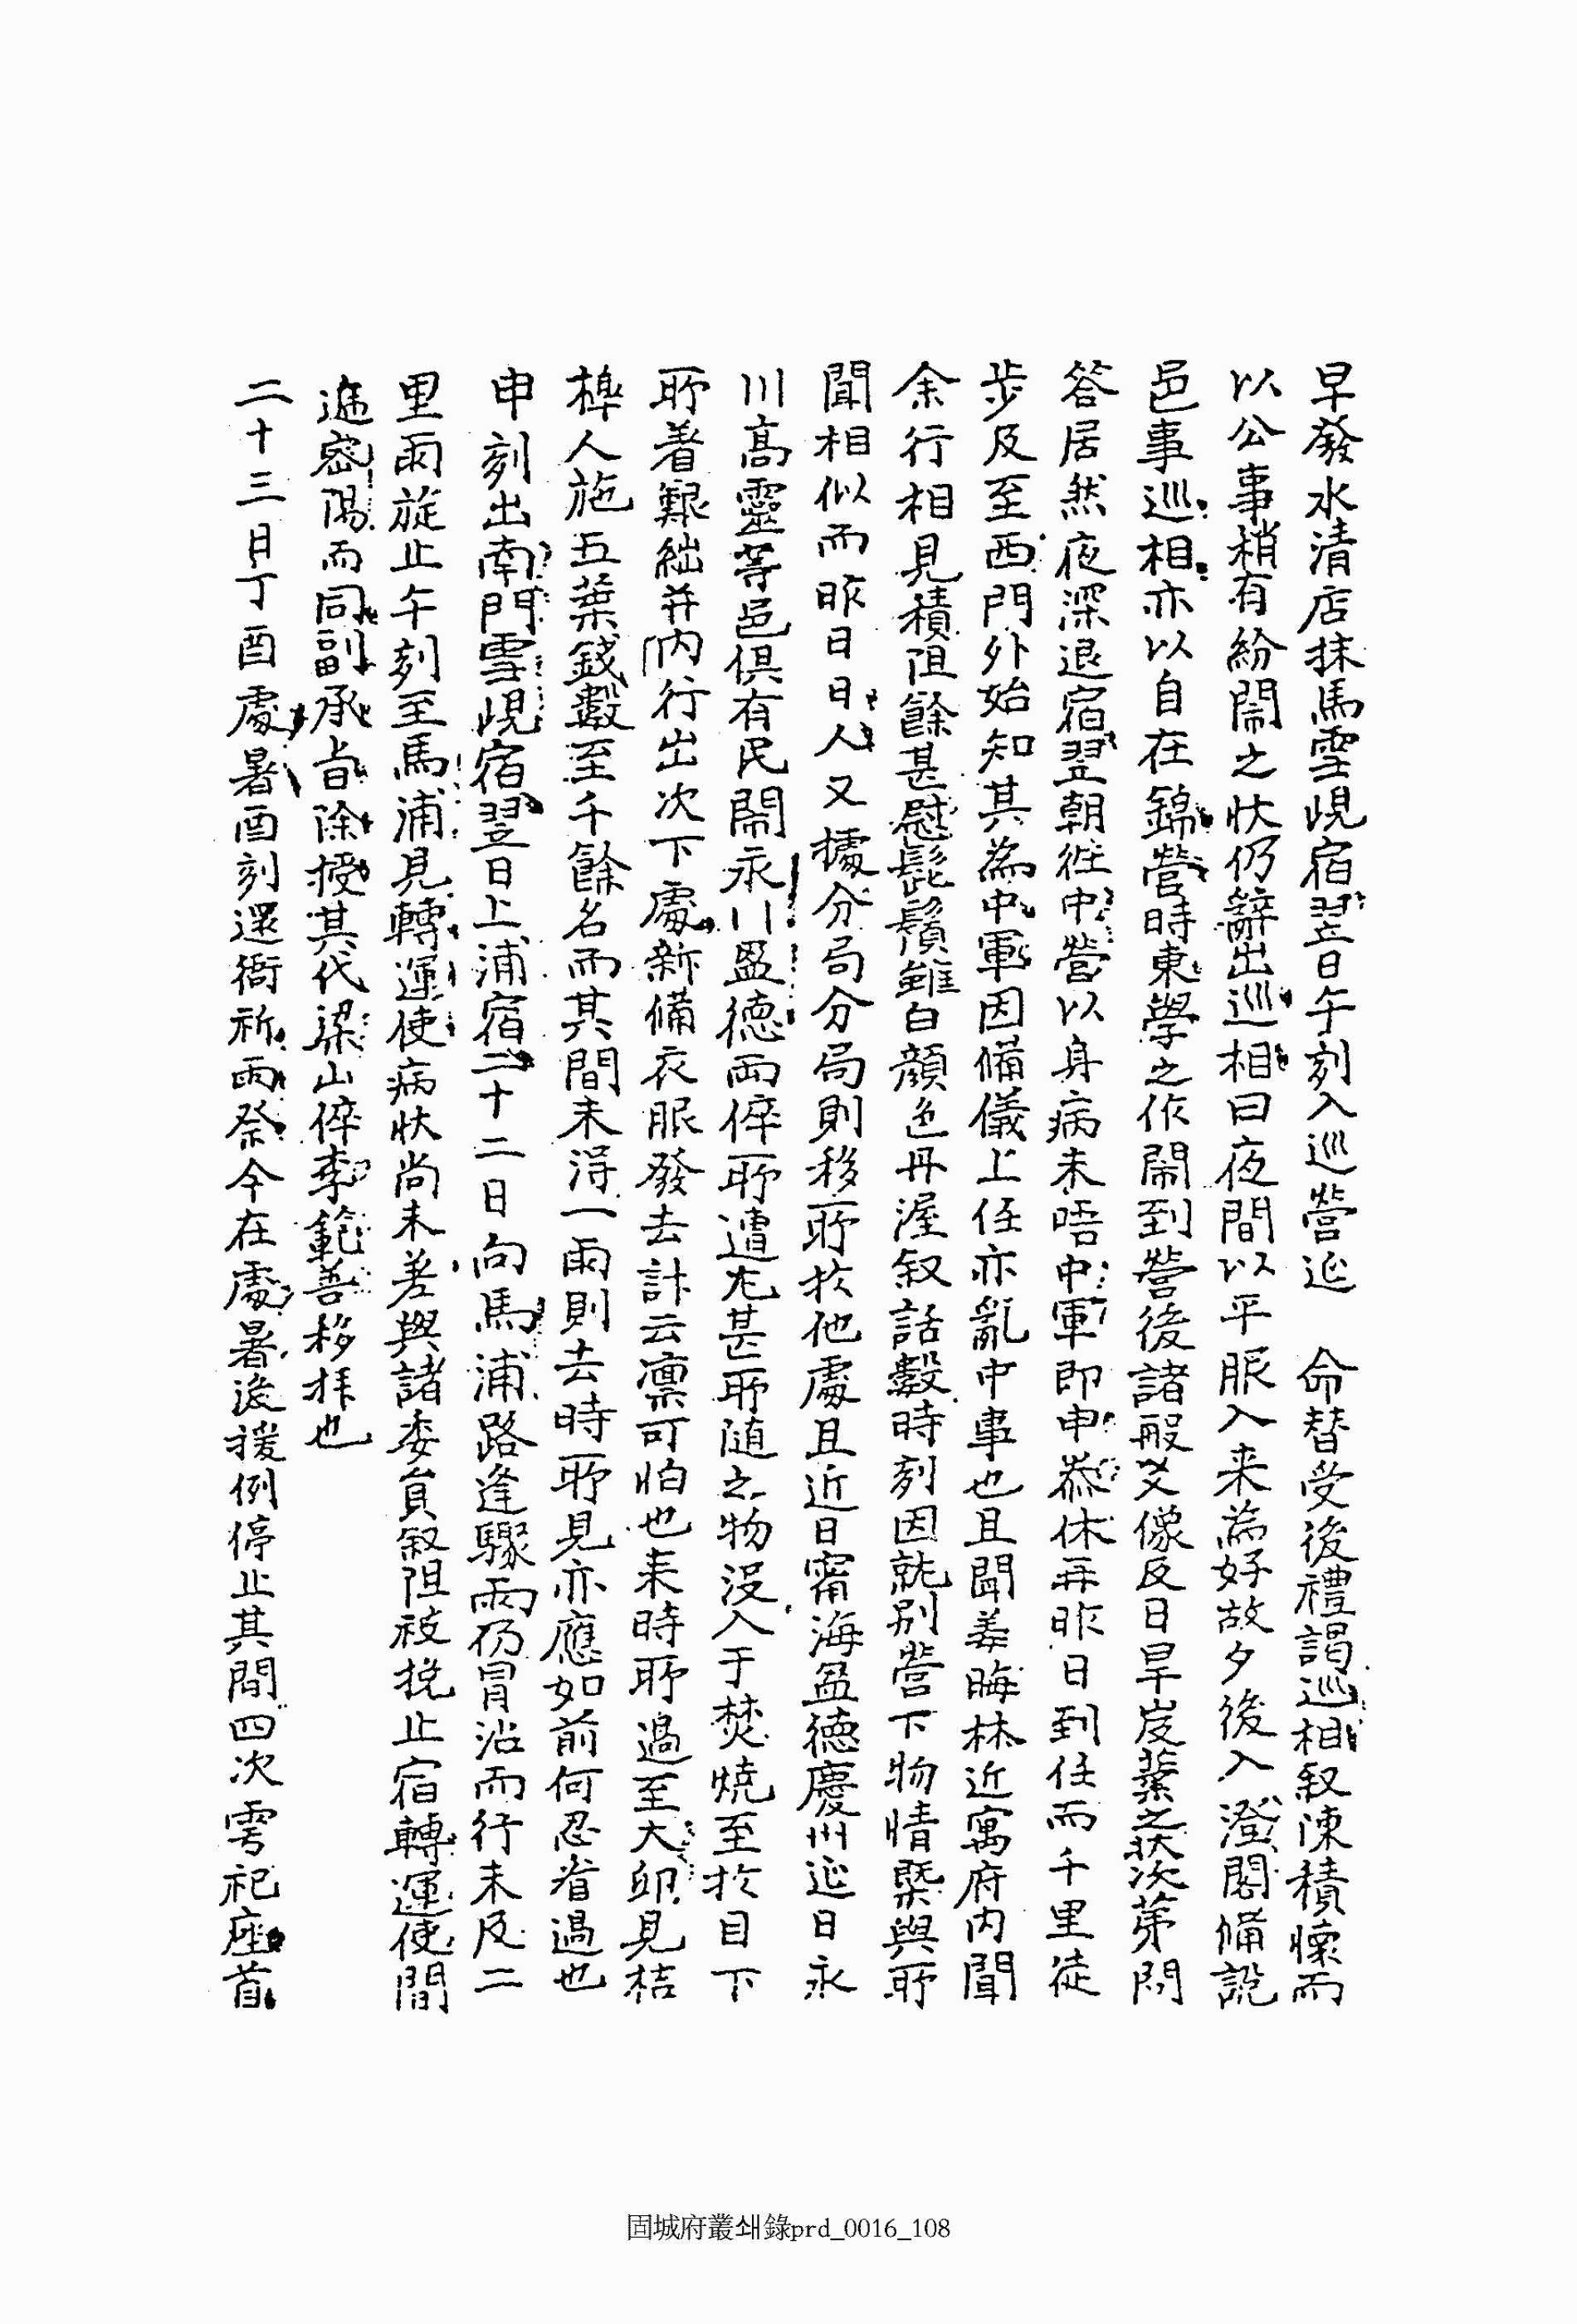 早發水清店抹馬雪峴宿翌日午刻入巡營延 命替受後禮謁巡相叙陳積懷而
以公事稍有紛鬧之狀仍辭出巡相曰夜間以平服入来為好故夕後入澄閣備說
邑事巡相亦以自在錦營時東學之作鬧到營後諸般爻像反日旱岌業之狀次苐問
答居然夜深退宿翌朝徃中營以身病未唔中軍即申泰休再昨日到任而千里徒
步及至西門外始知其為中軍因備儀上任亦亂中事也且聞姜晦林近寓府内聞
余行相見積阻餘甚慰髭鬚雖白顔色丹渥叙話數時刻因就别營下物情槩與所
聞相似而昨日日人又據分局分局則移所於他處且近日甯海盈德慶州延日永
川高靈等邑俱有民鬧永川盈德兩倅所遭尤甚所随之物没入于焚燒至於目下
所着艱絀并内行出次下處新備衣服發去計云凛可怕也来時所過至大卯見桔
槹人施五葉錢數至千餘名而其間未淂一雨則去時所見亦應如前何忍省過也
申刻出南門雪峴宿翌日上浦宿二十二日向馬浦路逢驟雨仍冒沾而行未及二
里雨旋止午刻至馬浦見轉運使病状尚未差與諸委員叙阻被挽止宿轉運使間
進密陽而同副承旨除授其代梁山倅李範善移拜也
二十三日丁酉處暑酉刻還衙祈雨祭今在處暑後援例停止其間四次雩祀座首